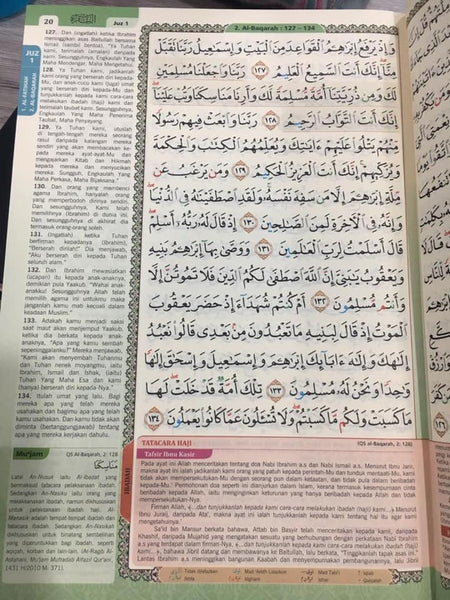 20
Juz 1
2. Al-Baqarah : 127 – 134
JUZ
1
1. AL-FATIHAH
2. AL-BAQARAH
127. Dan (ingatlah) ketika Ibrahim
meninggikan asas Baitullah bersama
Ismail (sambil berdoa), "Ya Tuhan
kami, terimalah (amalan) daripada
kami. Sesungguhnya, Engkaulah Yang
Maha Mendengar, Maha Mengetahui.
128. Ya Tuhan kami, jadikanlah
kami orang yang berserah diri kepada-
Mu, dan anak cucu kami (juga) umat
yang berserah diri kepada-Mu dan
tunjukkanlah kepada kami cara-cara
melakukan ibadah (haji) kami dan
terimalah taubat kami. Sesungguhnya,
Engkaulah Yang Maha Penerima
Taubat, Maha Penyayang.
129. Ya Tuhan kami, utuslah
di tengah-tengah mereka seorang
rasul daripada kalangan mereka
sendiri yang akan membacakan ke-
pada mereka ayat-ayat-Mu dan
mengajarkan Kitab dan Hikmah
kepada mereka dan menyucikan
mereka. Sungguh, Engkaulah Yang
Maha Perkasa, Maha Bijaksana."
130. Dan orang yang membenci
agama Ibrahim, hanyalah orang
yang memperbodoh dirinya sendiri.
Dan sesungguhnya, Kami telah
memilihnya (Ibrahim) di dunia ini.
Dan sesungguhnya di akhirat dia
termasuk orang-orang soleh.
131. (Ingatlah) ketika Tuhan
berfirman kepadanya (Ibrahim),
"Berserah dirilah!" Dia menjawab,
"Aku berserah diri kepada Tuhan
seluruh alam."
132. Dan Ibrahim mewasiatkan
(ucapan) itu kepada anak-anaknya,
demikian pula Yaakub. "Wahai anak-
anakku! Sesungguhnya Allah telah
memilih agama ini untukmu maka
janganlah kamu mati kecuali dalam
keadaan Muslim."
133. Adakah kamu menjadi saksi
saat maut akan menjemput Yaakub,
ketika dia berkata kepada anak-
anaknya, "Apa yang kamu sembah
sepeninggalanku?" Mereka menjawab,
"Kami akan menyembah Tuhanmu
dan Tuhan nenek moyangmu, iaitu
Ibrahim, Ismail dan Ishak, (iaitu)
Tuhan Yang Maha Esa dan kami
(hanya) berserah diri kepada-Nya."
134. Itulah umat yang lalu. Bagi
mereka apa yang telah mereka
usahakan dan bagimu apa yang telah
kamu usahakan. Dan kamu tidak akan
diminta (bertanggungjawab) tentang
apa yang mereka kerjakan dahulu.
وَإِذْ يَرْفَعُ إِبْرَٰهِـۧمُ ٱلْقَوَاعِدَ مِنَ ٱلْبَيْتِ وَإِسْمَـٰعِيلُ رَبَّنَا تَقَبَّلْ
مِنَّآ إِنَّكَ أَنتَ ٱلسَّمِيعُ ٱلْعَلِيمُ ١٢٧ رَبَّنَا وَٱجْعَلْنَا مُسْلِمَيْنِ
لَكَ وَمِن ذُرِّيَّتِنَآ أُمَّةً مُّسْلِمَةً لَّكَ وَأَرِنَا مَنَاسِكَنَا وَتُبْ عَلَيْنَآ
إِنَّكَ أَنتَ ٱلتَّوَّابُ ٱلرَّحِيمُ ١٢٨ رَبَّنَا وَٱبْعَثْ فِيهِمْ رَسُولًا
مِّنْهُمْ يَتْلُوا۟ عَلَيْهِمْ ءَايَـٰتِكَ وَيُعَلِّمُهُمُ ٱلْكِتَـٰبَ وَٱلْحِكْمَةَ
وَيُزَكِّيهِمْ إِنَّكَ أَنتَ ٱلْعَزِيزُ ٱلْحَكِيمُ ١٢٩ وَمَن يَرْغَبُ عَن
مِّلَّةِ إِبْرَٰهِـۧمَ إِلَّا مَن سَفِهَ نَفْسَهُۥ وَلَقَدِ ٱصْطَفَيْنَـٰهُ فِى ٱلدُّنْيَا
وَإِنَّهُۥ فِى ٱلْـَٔاخِرَةِ لَمِنَ ٱلصَّـٰلِحِينَ ١٣٠ إِذْ قَالَ لَهُۥ رَبُّهُۥٓ أَسْلِمْ
قَالَ أَسْلَمْتُ لِرَبِّ ٱلْعَـٰلَمِينَ ١٣١ وَوَصَّىٰ بِهَآ إِبْرَٰهِـۧمُ بَنِيهِ
وَيَعْقُوبُ يَـٰبَنِىَّ إِنَّ ٱللَّهَ ٱصْطَفَىٰ لَكُمُ ٱلدِّينَ فَلَا تَمُوتُنَّ إِلَّا
وَأَنتُم مُّسْلِمُونَ ١٣٢ أَمْ كُنتُمْ شُهَدَآءَ إِذْ حَضَرَ يَعْقُوبَ
ٱلْمَوْتُ إِذْ قَالَ لِبَنِيهِ مَا تَعْبُدُونَ مِنۢ بَعْدِى قَالُوا۟ نَعْبُدُ
إِلَـٰهَكَ وَإِلَـٰهَ ءَابَآئِكَ إِبْرَٰهِـۧمَ وَإِسْمَـٰعِيلَ وَإِسْحَـٰقَ إِلَـٰهًا
وَٰحِدًا وَنَحْنُ لَهُۥ مُسْلِمُونَ ١٣٣ تِلْكَ أُمَّةٌ قَدْ خَلَتْ لَهَا
مَا كَسَبَتْ وَلَكُم مَّا كَسَبْتُمْ وَلَا تُسْـَٔلُونَ عَمَّا كَانُوا۟ يَعْمَلُونَ ١٣٤
Mu'jam
(QS al-Baqarah, 2: 128)
مَنَاسِكَنَا
Lafaz An-Nusuk iaitu Al-Ibadat yang
bermaksud tatacara pelaksanaan ibadah.
Sedangkan An-Nasiku iaitu orang yang
melaksanakan ibadah, namun dikhususkan
untuk pelaksanaan ibadah haji. Al-
Manasik adalah tempat-tempat ibadah dan
tatacara ibadah. Sedangkan An-Nasikah
dikhususkan untuk binatang sembelihan
yang diperuntukkan bagi ibadah, seperti
korban dan lain-lain. (Al-Ragib Al-
Asfahani, Mu'jam Mufradat Alfazil Qur'ani,
(431 H/2010 M: 371).
IBADAH
TATACARA HAJI
(QS al-Baqarah, 2: 128)
Tafsir Ibnu Kasir
Pada ayat ini Allah menceritakan tentang doa Nabi Ibrahim a.s dan Nabi Ismail a.s. Menurut Ibnu Jarir,
makna ayat ini ialah jadikanlah kami orang yang patuh kepada perintah-Mu dan tunduk mentaati-Mu, kami
tidak akan mempersekutukan-Mu dengan seorang pun dalam ketaatan, dan tidak pula dalam beribadah
kepada-Mu.
Firman Allah, (…dan tunjukkanlah kepada kami cara-cara melakukan ibadah (haji) kami…) Menurut
Sa'id bin Mansur berkata bahawa, Attab bin Basyir telah menceritakan kepada kami, daripada
Khasif, daripada Mujahid yang mengatakan